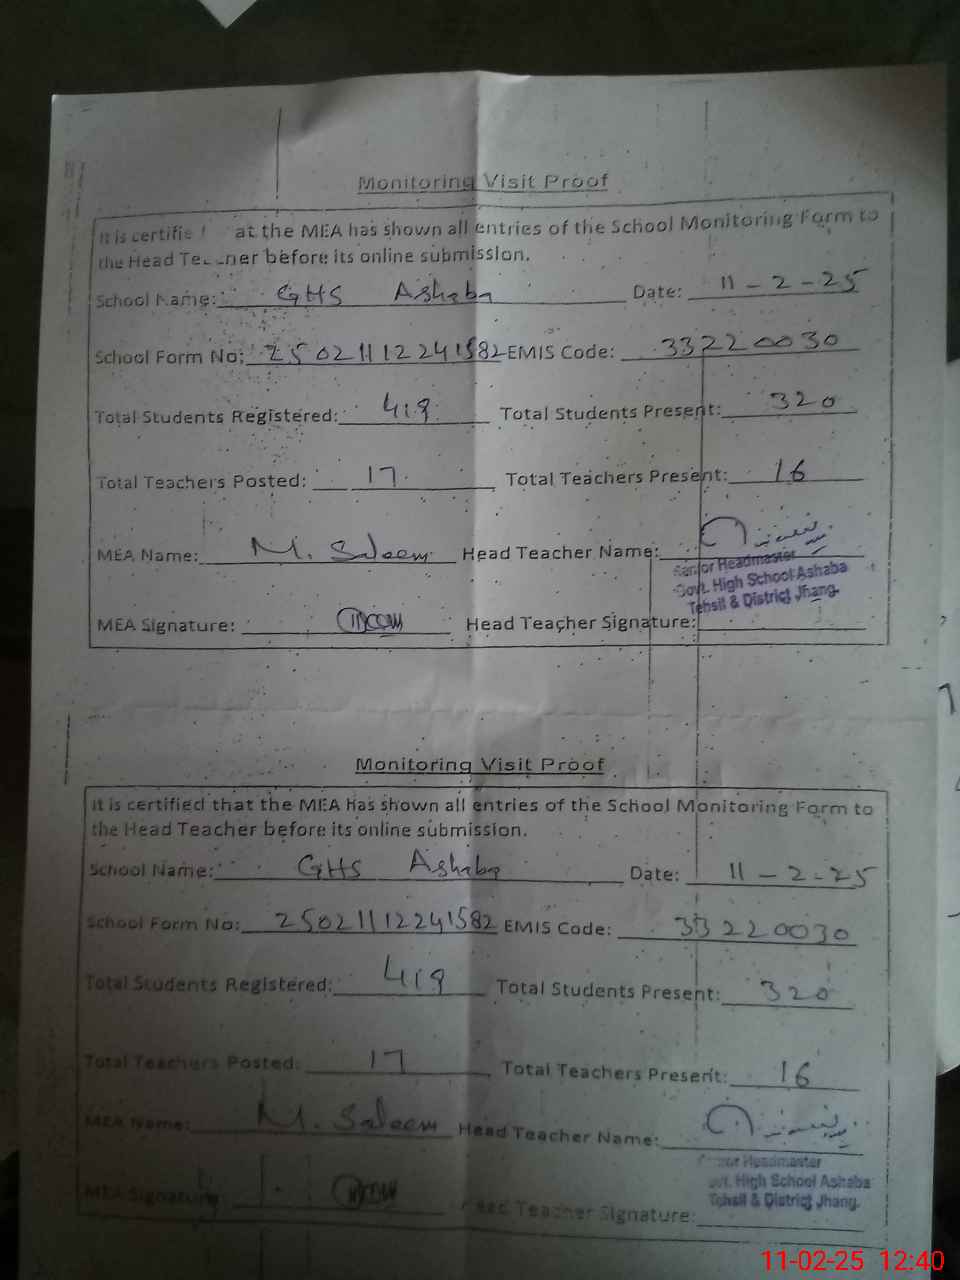 Monitoring Visit Proof
It is certifie at the MEA has shown all entries of the School Monitoring Form to
the Head Te ner before its online submission.
School Name: GHS Ashaba Date: 11-2-25
School Form No: 25021112241582 EMIS Code: 33220030
Total Students Registered: 419 Total Students Present: 320
Total Teachers Posted: 17 Total Teachers Present: 16
MEA Name: M. Saleem Head Teacher Name:
Senior Headmaster
Govt. High School Ashaba
Tehsil & District Jhang.
MEA Signature: Head Teacher Signature:
Monitoring Visit Proof
It is certified that the MEA has shown all entries of the School Monitoring Form to
the Head Teacher before its online submission.
School Name: GHS Ashaba Date: 11-2-25
School Form No: 25021112241582 EMIS Code: 33220030
Total Students Registered: 419 Total Students Present: 320
Total Teachers Posted: 17 Total Teachers Present: 16
MEA Name: M. Saleem Head Teacher Name:
Senior Headmaster
Govt. High School Ashaba
Tehsil & District Jhang.
MEA Signature: Head Teacher Signature:
11-02-25 12:40